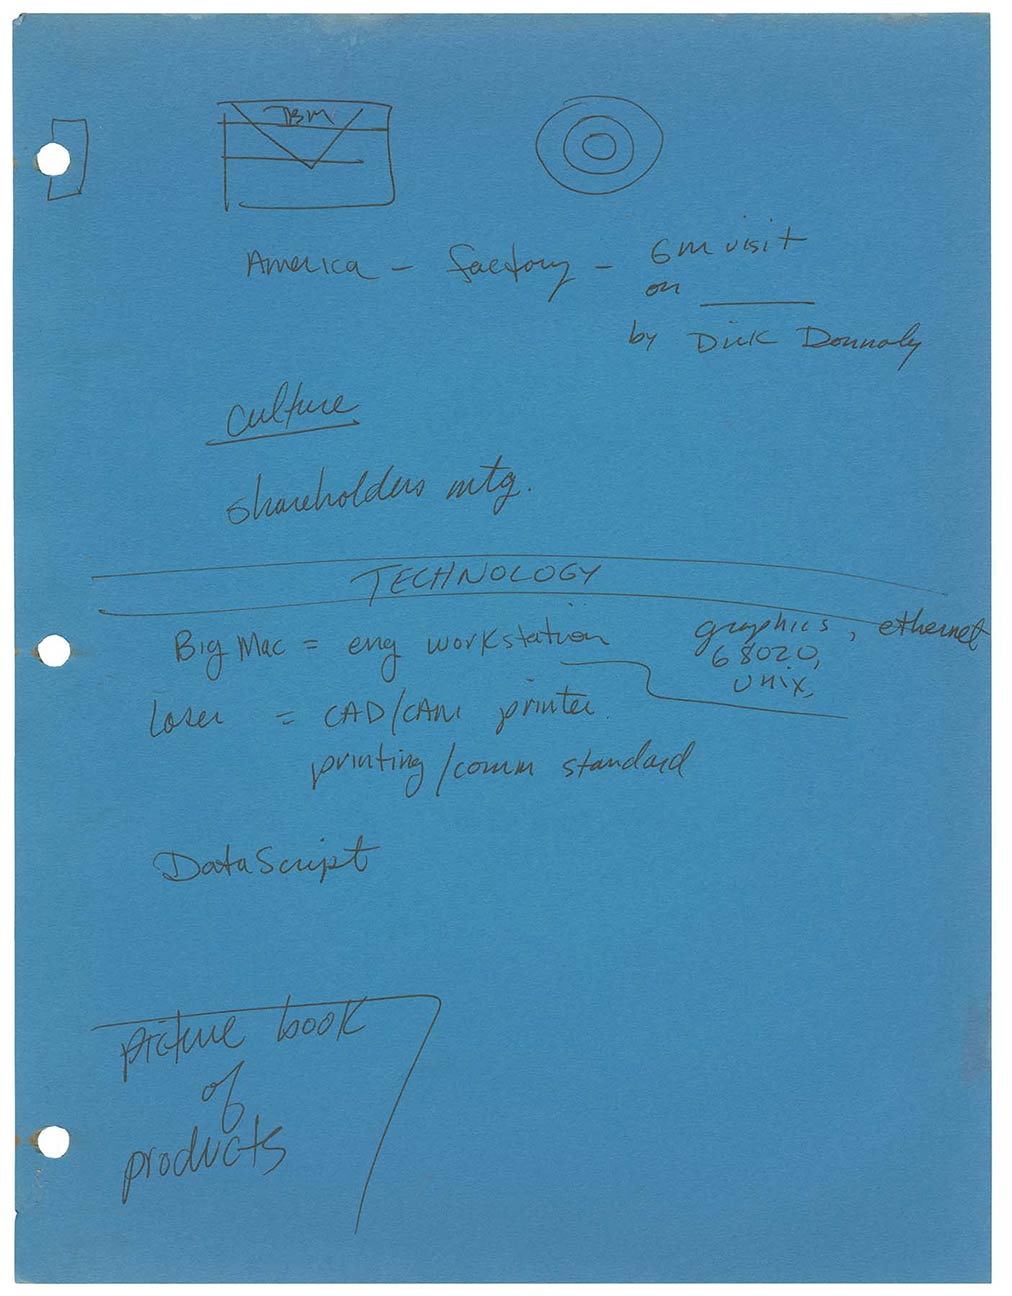 IBM
America - factory - GM visit
on ____
by Dick Donnaly
culture
shareholders mtg.
TECHNOLOGY
Big Mac = eng workstation graphics, ethernet
68020,
unix,
Laser = CAD/CAM printer.
printing/comm standard
DataScript
picture book
of
products